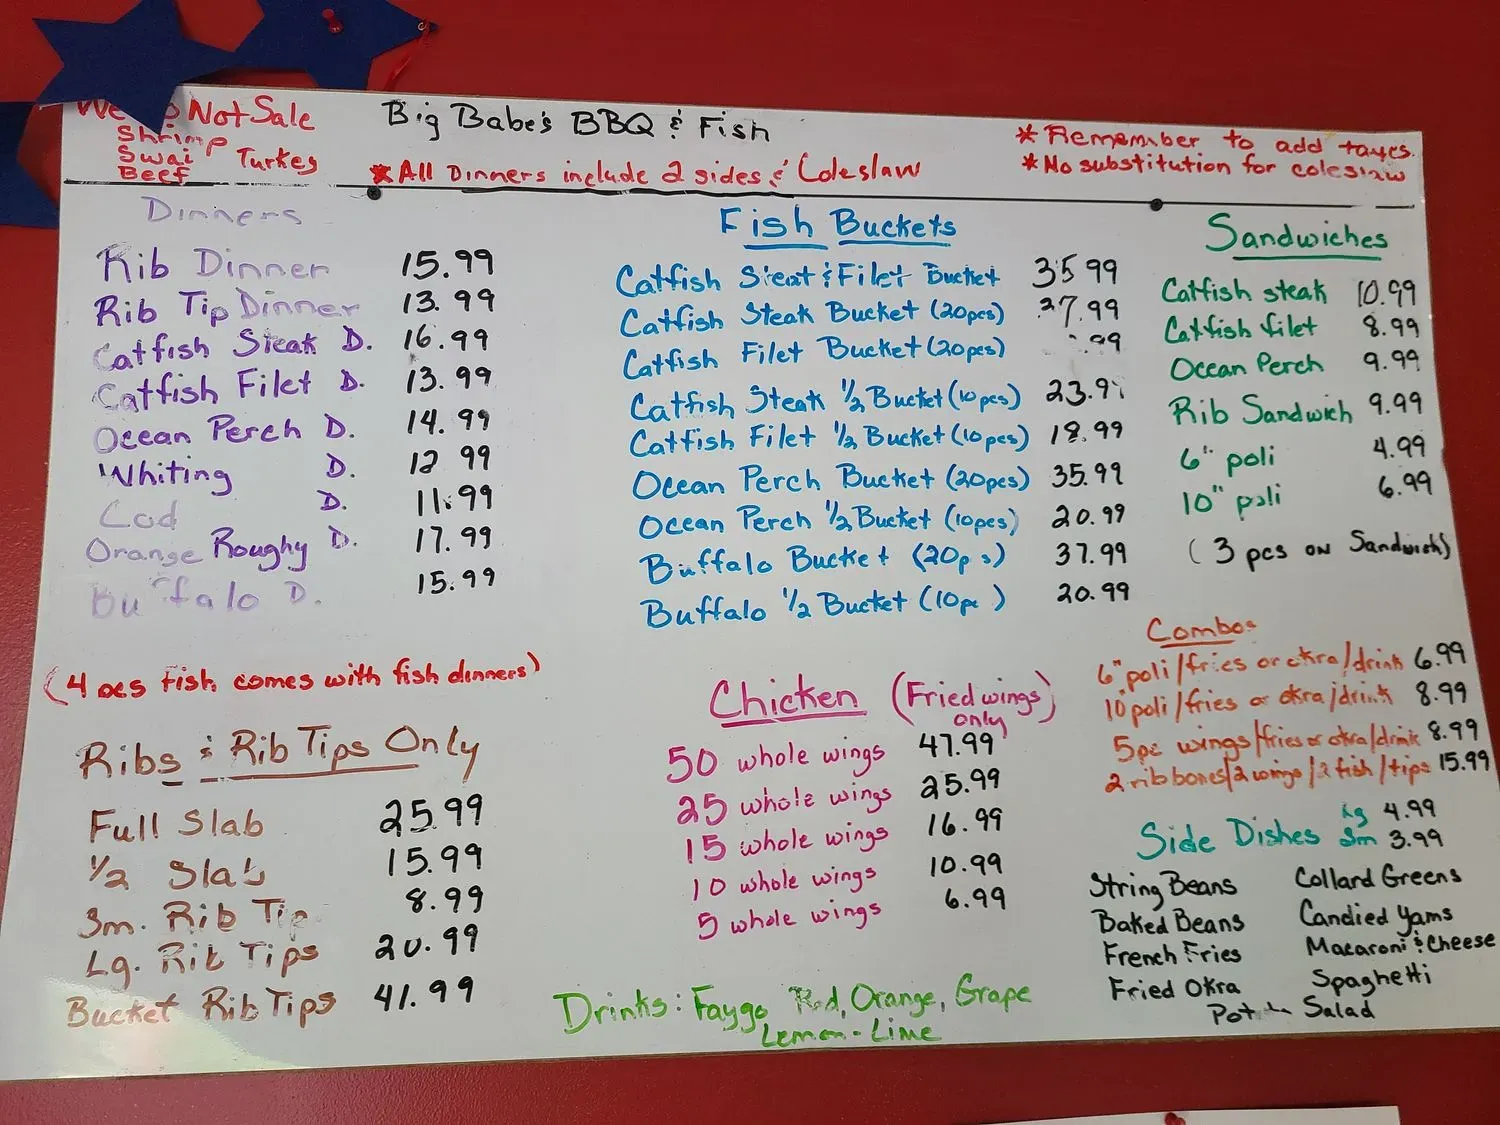 We Do Not Sale
Shrimp
Swai Turkey
Beef
Big Babe's BBQ & Fish
* All Dinners include 2 sides & Coleslaw
* Remember to add taxes.
* No substitution for coleslaw
Dinners
Rib Dinner 15.99
Rib Tip Dinner 13.99
Catfish Steak D. 16.99
Catfish Filet D. 13.99
Ocean Perch D. 14.99
Whiting D. 12 99
Cod D. 11.99
Orange Roughy D. 17.99
Buffalo D. 15.99
(4 pcs fish comes with fish dinners)
Ribs & Rib Tips Only
Full Slab 25.99
1/2 Slab 15.99
Sm. Rib Tip 8.99
Lg. Rib Tips 20.99
Bucket Rib Tips 41.99
Fish Buckets
Catfish Steat & Filet Bucket 35 99
Catfish Steak Bucket (20pcs) 37.99
Catfish Filet Bucket (20pcs) .99
Catfish Steak 1/2 Bucket (10pcs) 23.99
Catfish Filet 1/2 Bucket (10pcs) 18.99
Ocean Perch Bucket (20pcs) 35.99
Ocean Perch 1/2 Bucket (10pcs) 20.99
Buffalo Bucket (20p s) 37.99
Buffalo 1/2 Bucket (10pc ) 20.99
Chicken (Fried wings only)
50 whole wings 47.99
25 whole wings 25.99
15 whole wings 16.99
10 whole wings 10.99
5 whole wings 6.99
Drinks: Faygo Red, Orange, Grape
Lemon-Lime
Sandwiches
Catfish steak 10.99
Catfish filet 8.99
Ocean Perch 9.99
Rib Sandwich 9.99
6" poli 4.99
10" poli 6.99
(3 pcs on Sandwich)
Combos
6" poli/fries or okra/drink 6.99
10" poli/fries or okra/drink 8.99
5pc wings/fries or okra/drink 8.99
2 rib bones/2 wings/2 fish/tips 15.99
Side Dishes Lg 4.99
Sm 3.99
String Beans Collard Greens
Baked Beans Candied Yams
French Fries Macaroni & Cheese
Fried Okra Spaghetti
Potato Salad